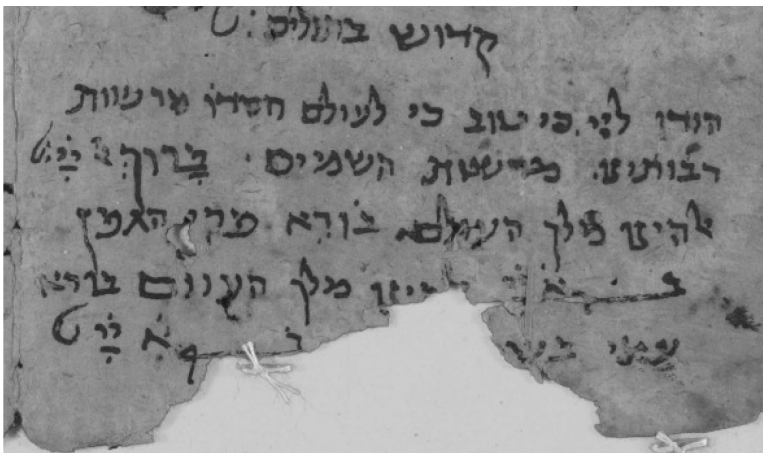 קדוש בתולים
הודו ליי כי טוב כי לעולם חסדו מרשות
רבותינו מרשות השמים ברוך א יי
להינו מלך העולם בורא פרי הגפן
ב א מלך העולם בורא
עצי בש א יי